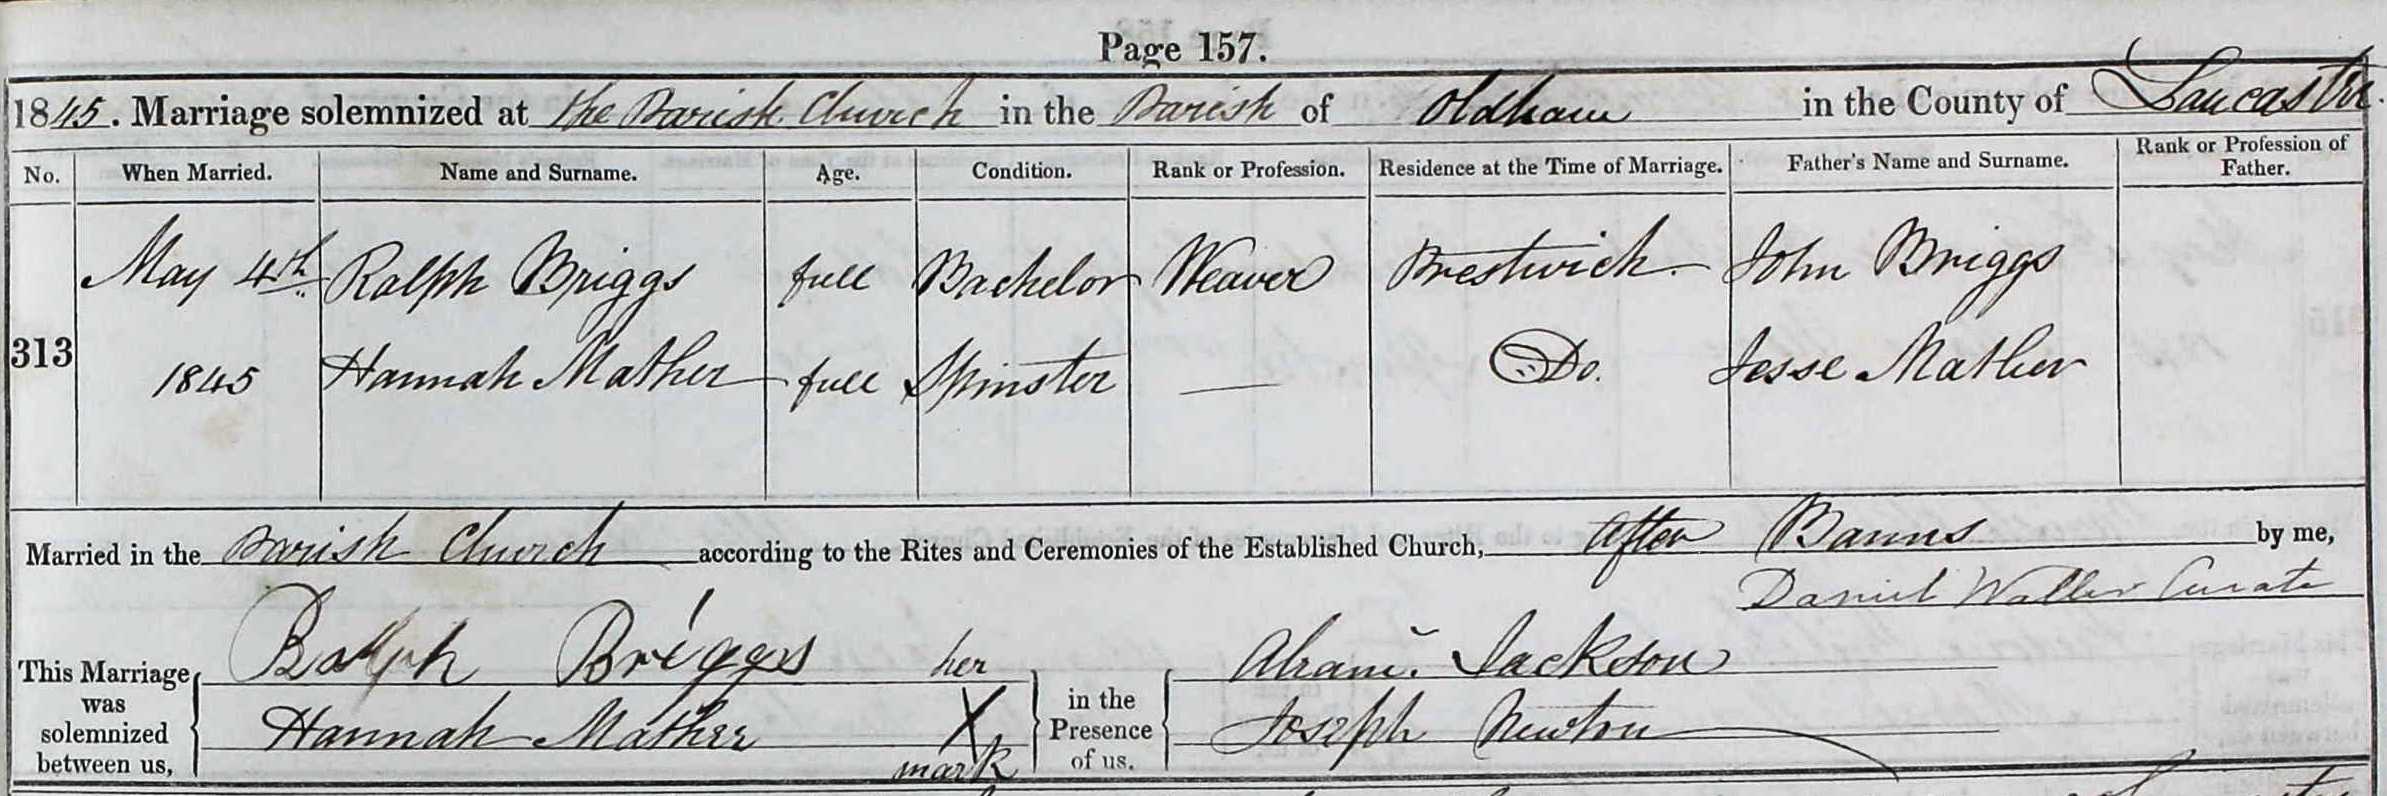 Page 157.
1845. Marriage solemnized at the Parish Church in the Parish of Oldham in the County of Lancaster.
No. When Married. Name and Surname. Age. Condition. Rank or Profession. Residence at the Time of Marriage. Father's Name and Surname. Rank or Profession of Father.
313 May 4th Ralph Briggs full Bachelor Weaver Prestwich. John Briggs
1845 Hannah Mather full Spinster — Do. Jesse Mather
Married in the Parish Church according to the Rites and Ceremonies of the Established Church, after Banns by me,
Daniel Waller Curate
This Marriage was solemnized between us, Ralph Briggs her
Hannah Mather X
mark
in the Presence of us. Jackson
Joseph Newton